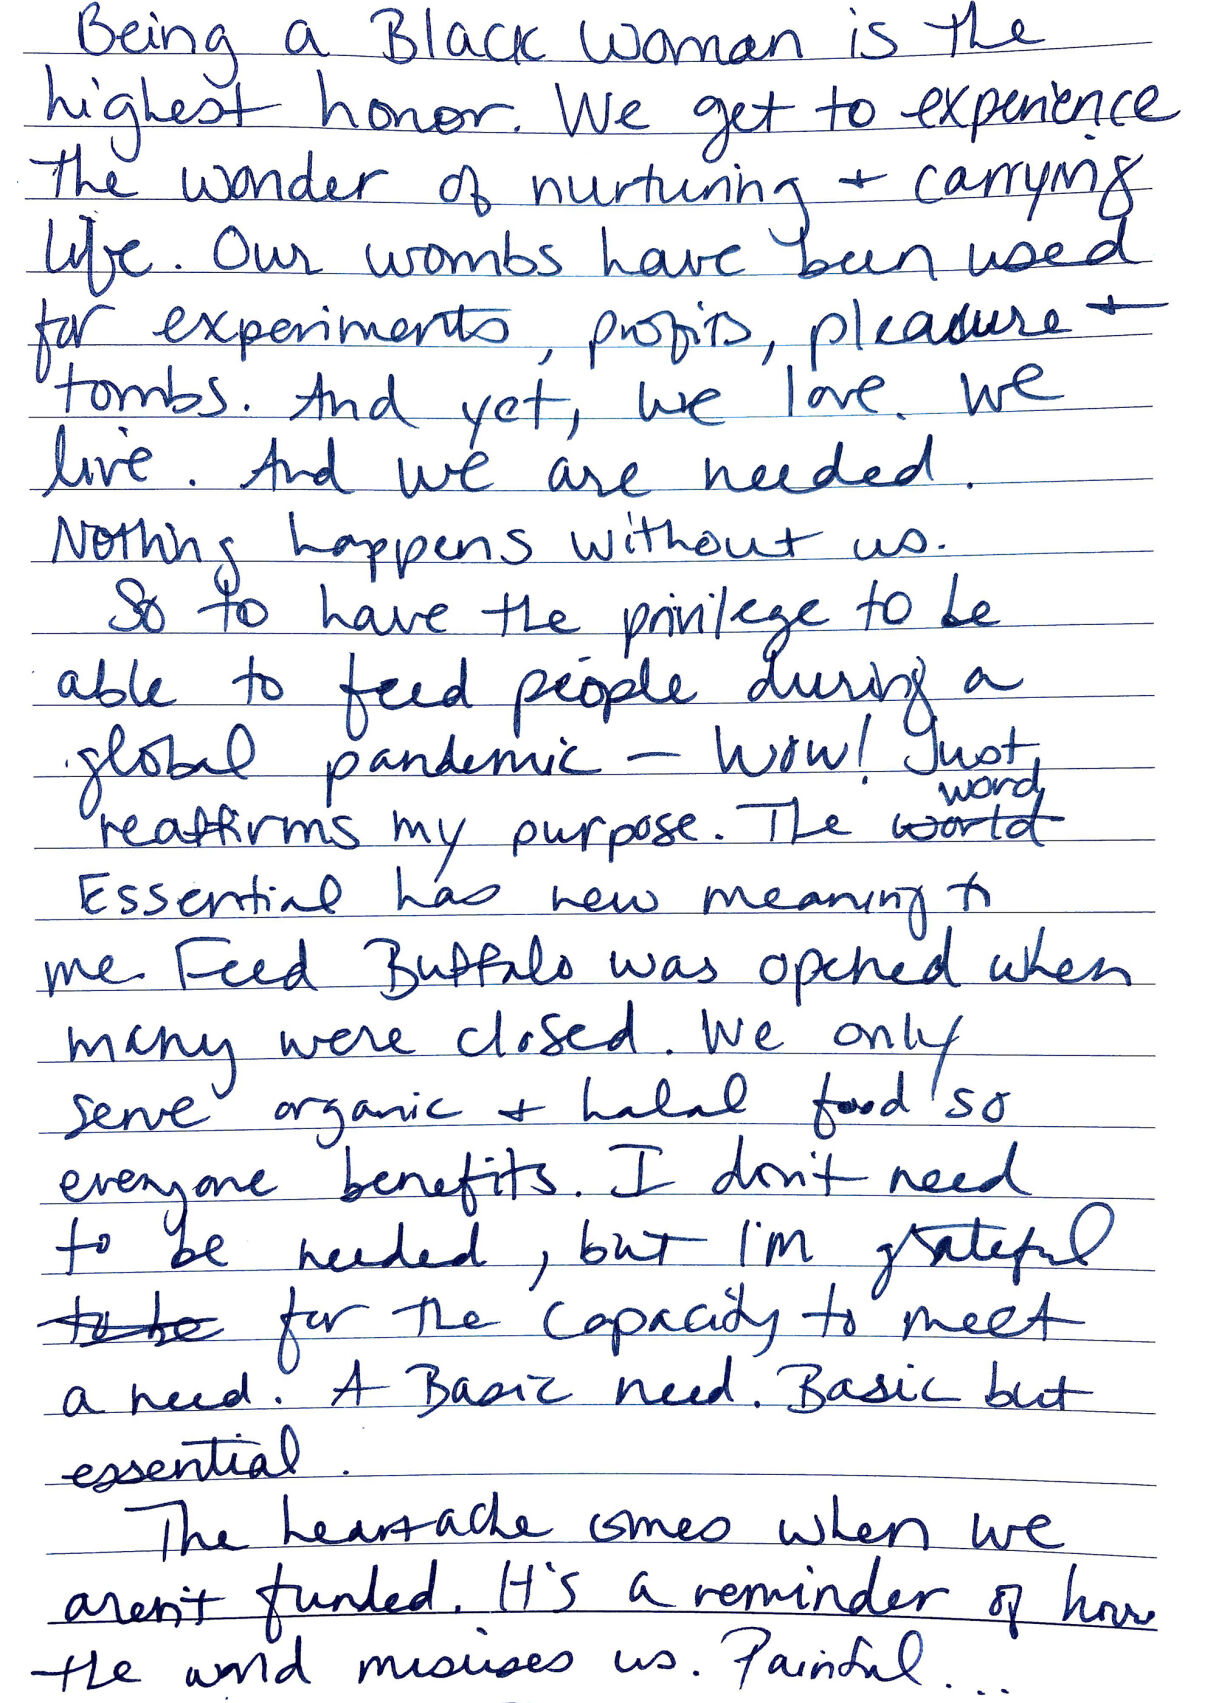 Being a Black Woman is the
highest honor. We get to experience
the wonder of nurturing + carrying
life. Our wombs have been used
for experiments, profits, pleasure +
tombs. And yet, we love. We
live. And we are needed.
Nothing happens without us.
So to have the privilege to be
able to feed people during a
global pandemic - Wow! Just
reaffirms my purpose. The ~~world~~ word
Essential has new meaning to
me. Feed Buffalo was opened when
many were closed. We only
serve organic + halal food so
everyone benefits. I don't need
to be needed, but I'm grateful
~~to be~~ for the capacity to meet
a need. A Basic need. Basic but
essential.
The heartache comes when we
aren't funded. It's a reminder of how
the world misuses us. Painful...